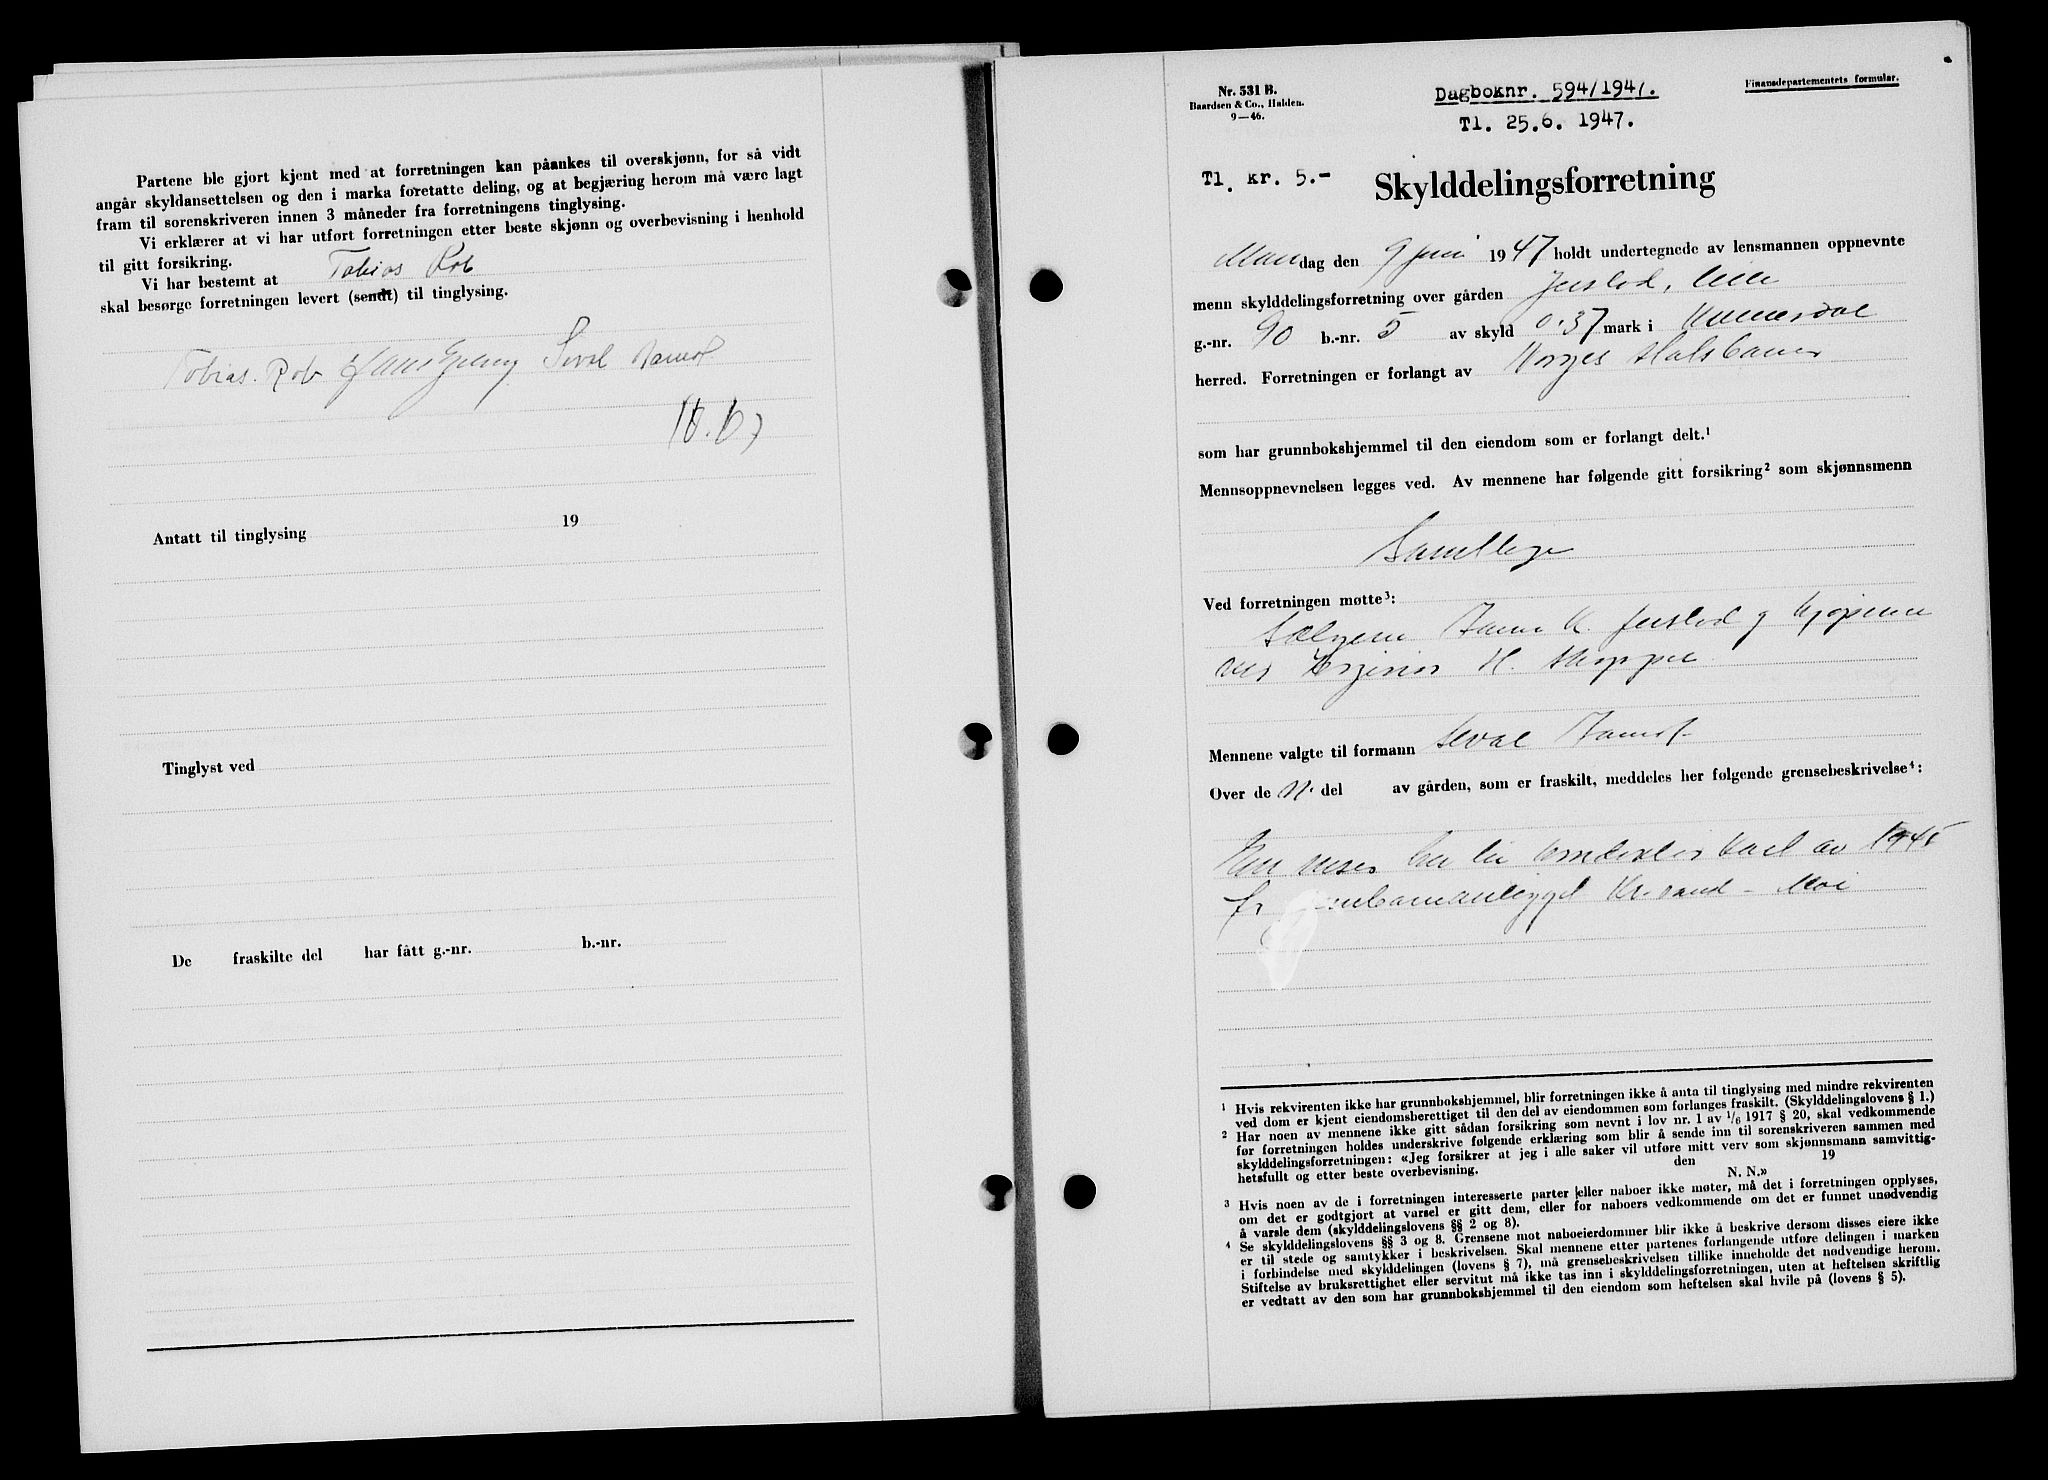 Partene ble gjort kjent med at forretningen kan påankes til overskjønn, for så vidt
angår skyldansettelsen og den i marka foretatte deling, og at begjæring herom må være lagt
fram til sorenskriveren innen 3 måneder fra forretningens tinglysing.
Vi erklærer at vi har utført forretningen etter beste skjønn og overbevisning i henhold
til gitt forsikring.
Vi har bestemt at Tobias Rob
skal besørge forretningen levert (sendt) til tinglysing.
Tobias Rob
Antatt til tinglysing 19
Tinglyst ved
De fraskilte del har fått g.-nr. b.-nr.
Nr. 531 B.
Baardsen & Co., Halden.
9—46.
Dagboknr. 594/1947.
Tl. 25.6. 1947.
Finansdepartementets formular.
Tl. kr. 5.-
Skylddelingsforretning
Mandag den 9 juni 1947 holdt undertegnede av lensmannen oppnevnte
menn skylddelingsforretning over gården
g.-nr. 90 b.-nr. 5 av skyld 0.37 mark i
herred. Forretningen er forlangt av Norges Statsbaner
som har grunnbokshjemmel til den eiendom som er forlangt delt.¹
Mennsoppnevnelsen legges ved. Av mennene har følgende gitt forsikring² som skjønnsmenn
Samtlige
Ved forretningen møtte³:
Sælgeren K. og Kjøperen
ved H.
Mennene valgte til formann
Over de n. del av gården, som er fraskilt, meddeles her følgende grensebeskrivelse⁴:
kart av 1945
Kr.sand - Moi
¹ Hvis rekvirenten ikke har grunnbokshjemmel, blir forretningen ikke å anta til tinglysing med mindre rekvirenten
ved dom er kjent eiendomsberettiget til den del av eiendommen som forlanges fraskilt. (Skylddelingslovens § 1.)
² Har noen av mennene ikke gitt sådan forsikring som nevnt i lov nr. 1 av 1/6 1917 § 20, skal vedkommende
før forretningen holdes underskrive følgende erklæring som blir å sende inn til sorenskriveren sammen med
skylddelingsforretningen: «Jeg forsikrer at jeg i alle saker vil utføre mitt verv som skjønnsmann samvittig-
hetsfullt og etter beste overbevisning. den 19
N. N.»
³ Hvis noen av de i forretningen interesserte parter eller naboer ikke møter, må det i forretningen opplyses,
om det er godtgjort at varsel er gitt dem, eller for naboers vedkommende om det er funnet unødvendig
å varsle dem (skylddelingslovens §§ 2 og 8).
⁴ Se skylddelingslovens §§ 3 og 8. Grensene mot naboeiendommer blir ikke å beskrive dersom disses eiere ikke
er til stede og samtykker i beskrivelsen. Skal mennene etter partenes forlangende utføre delingen i marken
i forbindelse med skylddelingen (lovens § 7), må grensebeskrivelsen tillike inneholde det nødvendige herom.
Stiftelse av bruksrettighet eller servitut må ikke tas inn i skylddelingsforretningen, uten at heftelsen skriftlig
er vedtatt av den som har grunnbokshjemmel til den eiendom som heftelsen skal hvile på (lovens § 5).